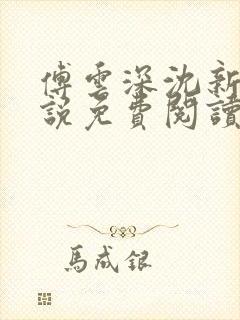 傅雲深沈新
說免費閱讀
馬成銀